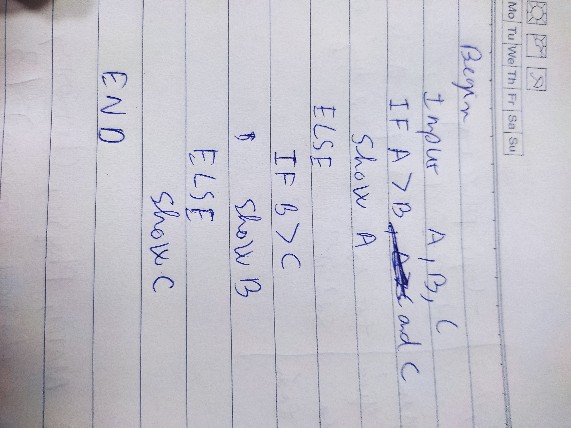 Mo Tu We Th Fr Sa Su
Begin
Input A, B, C
IF A > B and C
Show A
ELSE
IF B > C
Show B
ELSE
Show C
END